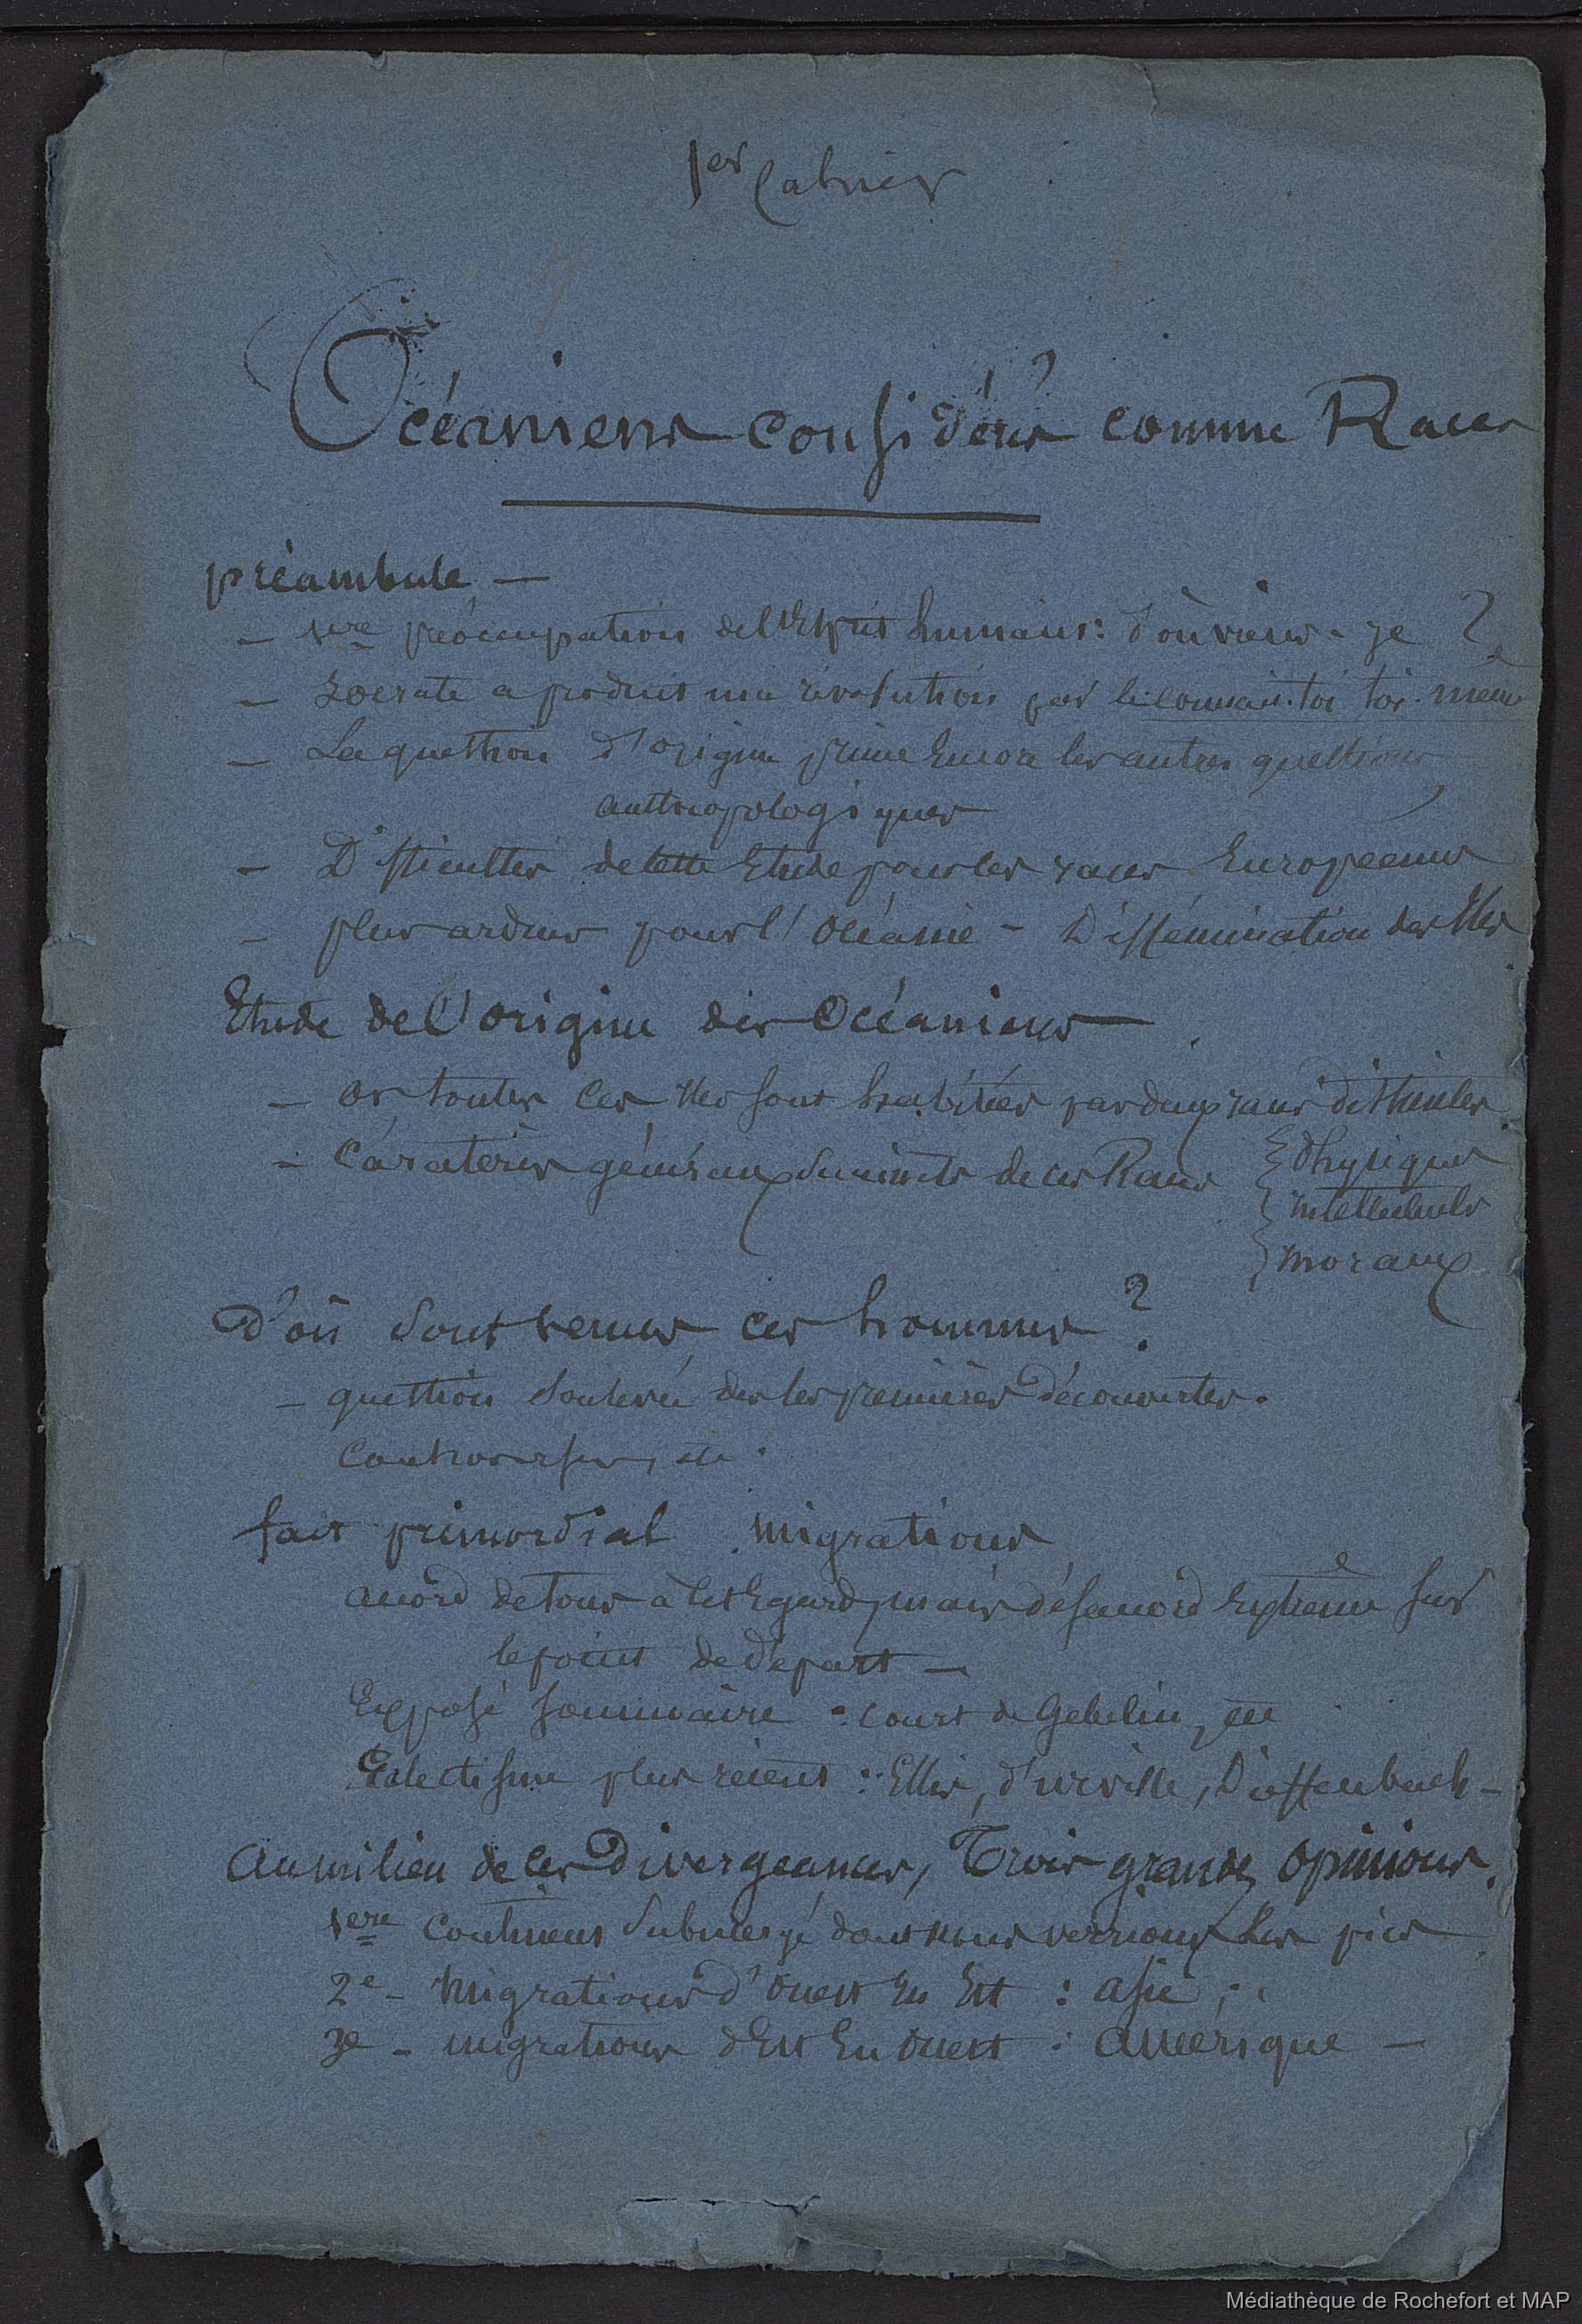 1er Cahier
Océaniens considérés comme Races
préambule —
— 1ere préocupation de l'Esprit humain : d'où viens-je ?
— Socrate a produit une révolution par le connais-toi toi-même
— La question d'origine prime Encore les autres questions
anthropologiques
— Difficultés de cette Etude pour les races Européennes
— plus ardues pour l'Océanie — Dissémination des Iles
Etude de l'origine des Océaniens —
— or toutes ces Iles sont habitées par deux races distinctes
— Caratères généraux succincts de ces Races { physiques
{ intellectuels
} moraux
D'où sont venus ces hommes ?
— question soulevée dès les premières découvertes.
Controverses, etc.
fait primordial migrations
accord de tous à cet Egard, mais désaccord Extreme sur
le point de départ —
Exposé sommaire : court de Gebelin, etc
Eclectisme plus récent : Ellis, d'urville, Dieffenbach —
Au milieu de ces Divergeances, Trois grandes opinions.
1ere Continent submergé dont nous verrions les pics
2e — Migrations d'ouest En Est : asie ;
3e — migrations d'Est En ouest : Amérique —
Médiathèque de Rochefort et MAP